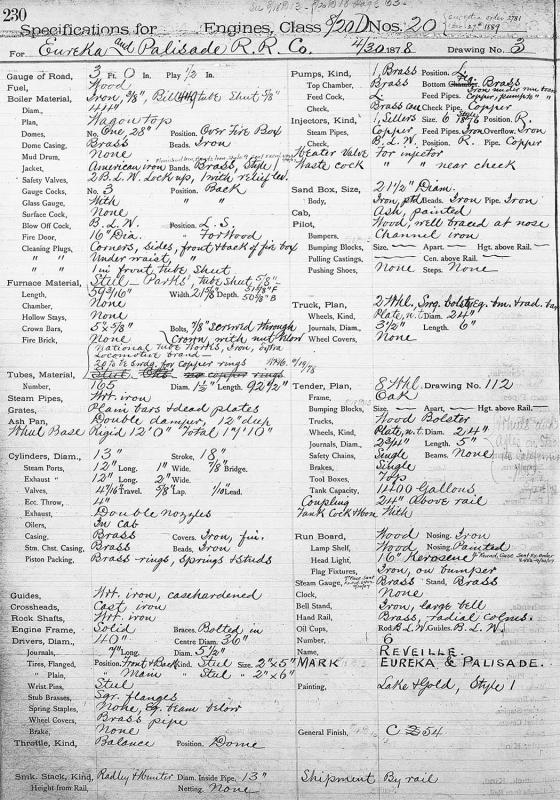 230
Specifications for Engines, Class 8/20 D Nos. 20
For Eureka and Palisade R.R. Co. 4/30 1878 Drawing No. 3
Gauge of Road, 3 Ft. 0 In. Play 1/2 In.
Fuel, Wood
Boiler Material, Iron, tube sheet
Diam., 44"
Plan, Wagon top
Domes, No. One, 28" Position, Over Fire Box
Dome Casing, Brass Beads, Iron
Mud Drum, None
Jacket, American iron Bands, Brass, Style 1
Safety Valves, 2 B.L.W. Lock up, 1 with relief lev.
Gauge Cocks, No. 3 Position, Back
Glass Gauge, With " "
Surface Cock, None
Blow Off Cock, B.L.W. Position, L.S.
Fire Door, 16" Dia. " For Wood
Cleaning Plugs, Corners, sides, front & back of fire box
" " Under waist, "
" " 1 in front tube sheet
Furnace Material, Steel - Parks' tube sheet 5/8"
Length, 59 3/16" Width, Depth,
Chamber, None
Hollow Stays, None
Crown Bars, 5" x 5/8" Bolts, 7/8" screwed through
Fire Brick, None Crown, with nut below
National Tube Works, Iron, extra
Locomotive brand
Tubes, Material, swdg. for copper rings
Number, 165 Diam. 1 1/2" Length, 92 1/2"
Steam Pipes, Wrt. iron
Grates, Plain bars & dead plates
Ash Pan, Double damper, 12" deep
Wheel Base Rigid 12' 0" Total 19' 10"
Cylinders, Diam., 13" Stroke, 18"
Steam Ports, 12" Long. 1" Wide. 7/8" Bridge.
Exhaust " 12" Long. 2" Wide.
Valves, 4 7/16" Travel. 5/8" Lap. 1/10" Lead.
Ecc. Throw, 4"
Exhaust, Double nozzles
Oilers, In cab
Casing, Brass Covers, Iron, fin.
Stm. Chst. Casing, Brass Beads, Iron
Piston Packing, Brass rings, Springs & Studs
Guides, Wrt. iron, casehardened
Crossheads, Cast iron
Rock Shafts, Wrt. iron
Engine Frame, Solid Braces, Bolted in
Drivers, Diam., 40" Centre Diam. 36"
Journals, 7" Long, Diam. 5 1/2"
Tires, Flanged, Position, Front & Back Kind, Steel Size, 2" x 5"
" Plain, " Main " Steel " 2" x 6"
Wrist Pins, Steel
Stub Brasses, Sqr. flanges
Spring Staples, None, Eq. beam below
Wheel Covers, Brass pipe
Brake, None
Throttle, Kind, Balance Position, Dome
Smk. Stack, Kind, Radley & Hunter Diam. Inside Pipe, 13"
Height from Rail, Netting, None
Pumps, Kind, 1, Brass Position, L.
Top Chamber, Brass Bottom Brass
Feed Cock, L Feed Pipes, Copper
Check, Brass Check Pipe, Copper
Injectors, Kind, 1, Sellers Size, 6 Position, R.
Steam Pipes, Copper Feed Pipes, Iron Overflow, Iron
Check, B.L.W. Position, R. Pipe, Copper
Heater Valve for injector
Waste cock " " near check
Sand Box, Size, 21 1/2" Diam.
Body, Iron, ptd. Beads, Iron Pipe, Iron
Cab, Ash, painted
Pilot, Wood, well braced at nose
Bumpers, Channel iron
Bumping Blocks, Size. Apart. Hgt. above Rail.
Pulling Castings, Cen. above Rail.
Pushing Shoes, None Steps, None
Truck, Plan, 2 Whl., Swg. bolster, Eq. bm. & rad. bar
Wheels, Kind, Plate, n.t. Diam. 24"
Journals, Diam., 3 1/2" Length. 6"
Wheel Covers, None
Tender, Plan, 8 Whl. Drawing No. 112
Frame, Oak
Bumping Blocks, Size, Apart, Hgt. above Rail.
Trucks, Wood Bolster
Wheels, Kind, Plate, n.t. Diam. 24"
Journals, Diam., 2 3/4" Length. 5"
Safety Chains, Single Beams, None
Brakes, Single
Tool Boxes, Tops
Tank Capacity, 1400 Gallons
Coupling 24" Above rail
Tank Cock & Horn With
Run Board, Wood Nosing, Iron
Lamp Shelf, Wood Nosing, Painted
Head Light, 16" Kerosene
Flag Fixtures, Iron, on bumper
Steam Gauge, Brass Stand, Brass
Clock, None
Bell Stand, Iron, large bell
Hand Rail, Brass, radial colmns.
Oil Cups, Rod, B.L.W. Guides, B.L.W.
Number, 6
Name, REVEILLE.
MARK EUREKA & PALISADE.
Painting, Lake & Gold, Style 1
General Finish, C 254
Shipment By rail